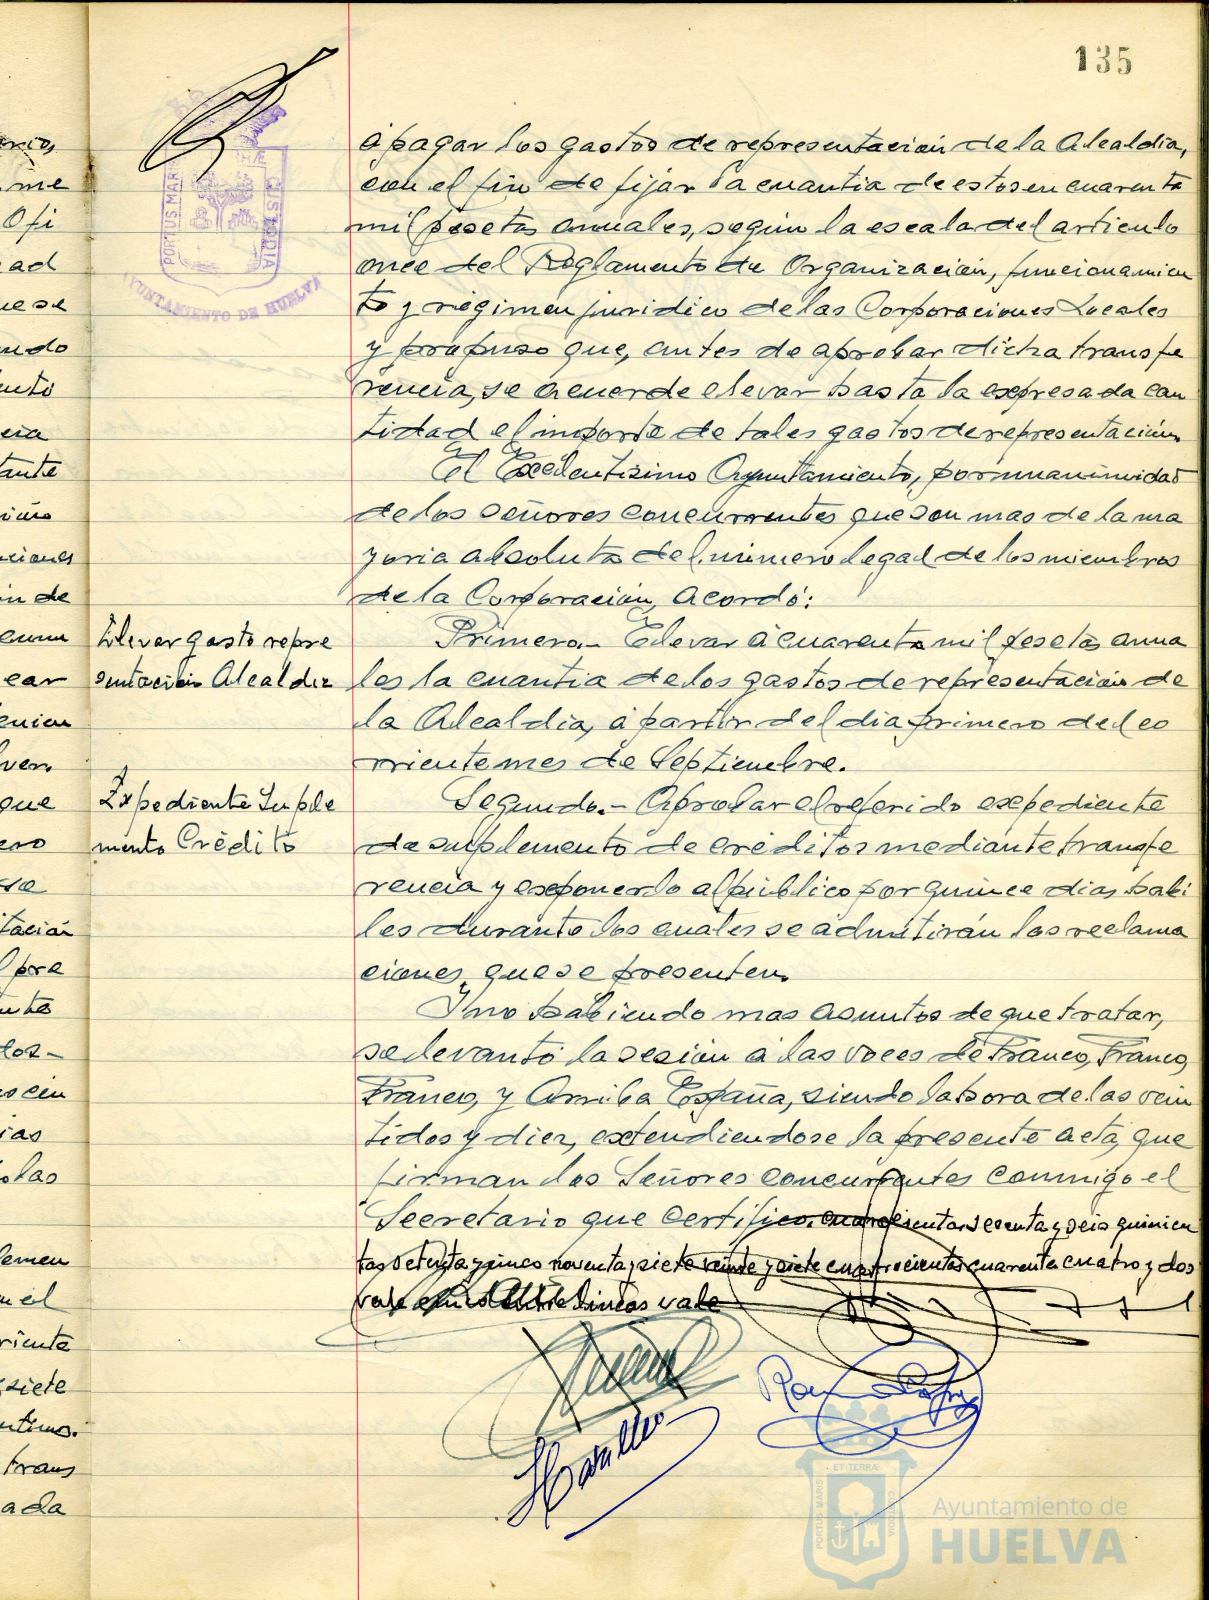 135
á pagar los gastos de representación de la Alcaldia,
con el fin de fijar la cuantia de estos en cuarenta
mil pesetas anuales, según la escala del articulo
once del Reglamento de Organización, funcionamien
to y régimen juridico de las Corporaciones Locales
y propuso que, antes de aprobar dicha transfe
rencia, se acuerde elevar hasta la expresada can
tidad el importe de tales gastos de representación.
El Excelentisimo Ayuntamiento, por unanimidad
de los señores concurrentes que son mas de la ma
yoria absoluta del número legal de los miembros
de la Corporación, acordó:
Elevar gasto repre
sentación Alcaldia
Primero.- Elevar á cuarenta mil pesetas anua
les la cuantia de los gastos de representación de
la Alcaldia, á partir del dia primero del co
rriente mes de Septiembre.
Expediente Suple
mento Crédito
Segundo.- Aprobar el referido expediente
de suplemento de créditos mediante transfe
rencia y exponerlo al público por quince dias habi
les durante los cuales se admitirán las reclama
ciones que se presenten.
Y no habiendo mas asuntos de que tratar,
se levantó la sesión a las voces de Franco, Franco,
Franco, y Arriba España, siendo la hora de las vein
tidos y diez, extendiendose la presente acta, que
firman los Señores concurrentes conmigo el
Secretario que certifico. sesenta y seis quinien
tas setenta y cinco noventa y siete veinte y siete cuatrocientas cuarenta cuatro y dos
vale lineas vale
PORTUS MARIS
CUSTODIA
AYUNTAMIENTO DE HUELVA
ET TERRÆ
PORTUS MARIS
CUSTODIA
Ayuntamiento de
HUELVA